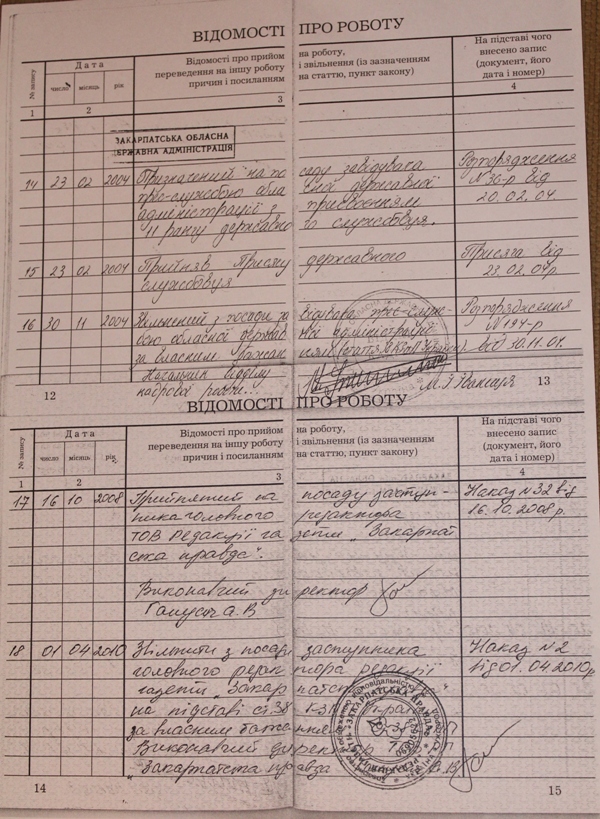 ВІДОМОСТІ ПРО РОБОТУ
№ запису
Дата
число місяць рік
Відомості про прийом на роботу,
переведення на іншу роботу і звільнення (із зазначенням
причин і посиланням на статтю, пункт закону)
На підставі чого
внесено запис
(документ, його
дата і номер)
1 2 3 4
ЗАКАРПАТСЬКА ОБЛАСНА
ДЕРЖАВНА АДМІНІСТРАЦІЯ
14 23 02 2004 Призначений на посаду завідувача Розпорядження
прес-службою обласної державної №36-р від
адміністрації з присвоєнням 20.02.04.
11 рангу державного службовця.
15 23 02 2004 Прийняв Присягу державного Присяга від
службовця 23.02.04р.
16 30 11 2004 Звільнений з посади завідувача прес-служ- Розпорядження
бою обласної державної адміністрації
за власним від 30.11.04.
Начальник відділу
кадрової роботи
12 13
ВІДОМОСТІ ПРО РОБОТУ
№ запису
Дата
число місяць рік
Відомості про прийом на роботу,
переведення на іншу роботу і звільнення (із зазначенням
причин і посиланням на статтю, пункт закону)
На підставі чого
внесено запис
(документ, його
дата і номер)
1 2 3 4
17 16 10 2008 Прийнятий на посаду заступ- Наказ №32 від
ника головного редактора 16.10.2008р.
ТОВ редакції газети „Закарпат
ська правда".
Виконавчий директор
А.В
18 01 04 2010 Звільнити з посади заступника Наказ №2
головного редактора редакції від 01.04.2010р
газети „Закарпатська
на підставі ст.38
за власним бажанням
Виконавчий директор
„Закарпатська правда
14 15